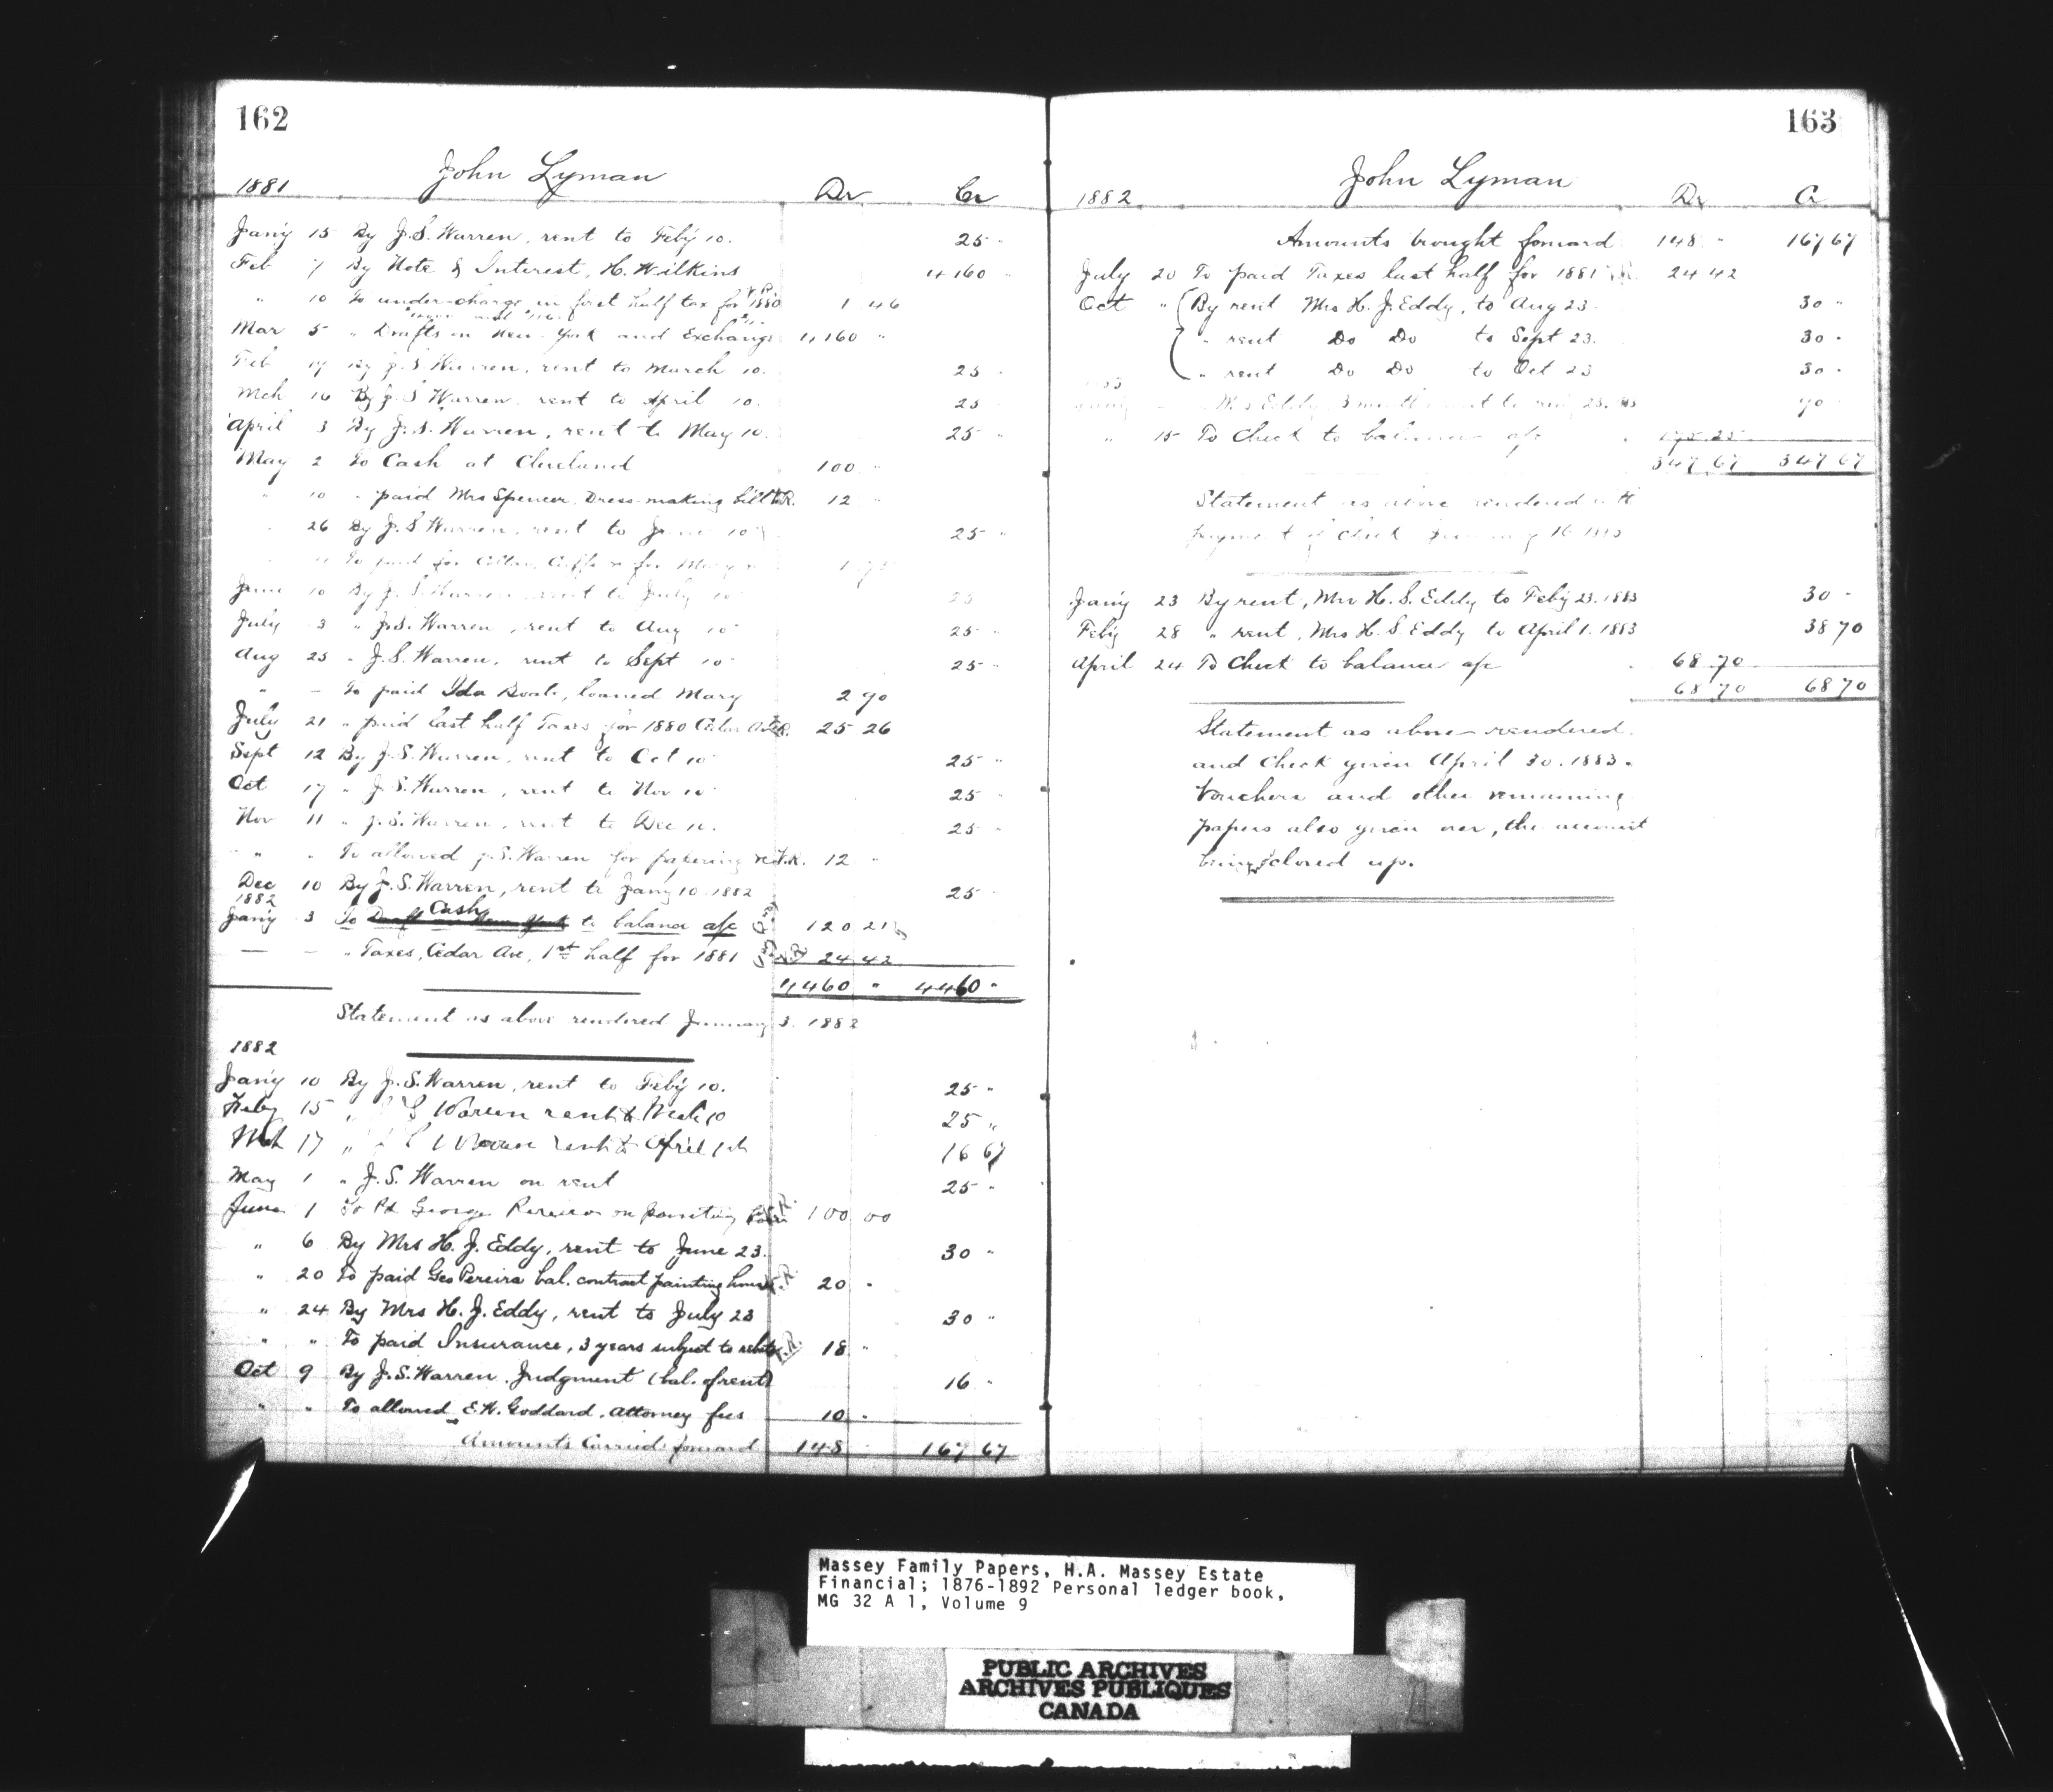 162
John Lyman
1881 Dr Cr
Jany 15 By J.S. Warren, rent to Feby 10. 25 "
Feb 7 By Note & Interest, H. Wilkins 4160 "
" 10 To under-charge in first half tax for 1880 1 46
Mar 5 " Drafts on New York and Exchange 4,160 "
Feb 17 By J.S Warren, rent to March 10. 25 "
Mch 16 By J.S Warren, rent to April 10. 25
April 3 By J.S. Warren, rent to May 10. 25 "
May 2 To Cash at Cleveland 100 "
" 10 " paid Mrs Spencer Dress-making bill 12 "
" 26 By J.S Warren, rent to June 10 25 "
" " To paid for Collars, Cuffs for Mary 1
June 10 By J.S. Warren, rent to July 10 25
July 3 " J.S. Warren, rent to Aug 10 25 "
Aug 25 " J.S. Warren, rent to Sept 10 25 "
" – To paid Ida Boals, loaned Mary 2 90
July 21 " paid last half Taxes for 1880 Cedar Ave 25 26
Sept 12 By J.S. Warren, rent to Oct 10 25 "
Oct 17 " J.S. Warren, rent to Nov 10 25 "
Nov 11 " J.S. Warren, rent to Dec 10. 25 "
" " To allowed J.S. Warren for papering V.R. 12 "
Dec 10 By J.S. Warren, rent to Jany 10 1882 25 "
1882
Jany 3 To Draft on New York Cash to balance a/c 120 21
— – " Taxes, Cedar Ave, 1st half for 1881 24 42
4,460 " 4460 "
Statement as above rendered January 3. 1882
1882
Jany 10 By J.S. Warren, rent to Feby 10. 25 "
Feby 15 " J S Warren rent to Mch 10 25 "
Mch 17 " J S Warren rent to April 1st 16 67
May 1 " J.S. Warren on rent 25 "
June 1 To Pd George Pereira on painting 100 00
" 6 By Mrs H. J. Eddy, rent to June 23. 30 "
" 20 To paid Geo Pereira bal. contract painting house 20 "
" 24 By Mrs H. J. Eddy, rent to July 23 30 "
" " To paid Insurance, 3 years subject to rebate V.R. 18 "
Oct 9 By J.S. Warren. Judgment (bal. of rent) 16 "
" " To allowed E.W. Goddard, Attorney fees 10 "
Amounts Carried forward 148 167 67
163
John Lyman
1882 Dr Cr
Amounts brought forward 148 " 167 67
July 20 To paid Taxes last half for 1881 24 42
Oct " By rent Mrs H. J. Eddy, to Aug 23. 30 "
" rent Do Do to Sept 23. 30 "
" rent Do Do to Oct 23 30 "
Mrs Eddy, 3 months rent to 23. 90
" 15 To Check to balance a/c 175 25
347 67 347 67
Statement as above rendered with
payment of check January 16 1883
Jany 23 By rent, Mrs H. S. Eddy to Feby 23. 1883 30 -
Feby 28 " rent, Mrs H. S. Eddy to April 1. 1883 38 70
April 24 To Check to balance a/c 68 70
68 70 68 70
Statement as above rendered
and check given April 30. 1883.
Vouchers and other remaining
papers also given over, the account
being closed up.
Massey Family Papers, H.A. Massey Estate
Financial; 1876-1892 Personal ledger book,
MG 32 A 1, Volume 9
PUBLIC ARCHIVES
ARCHIVES PUBLIQUES
CANADA